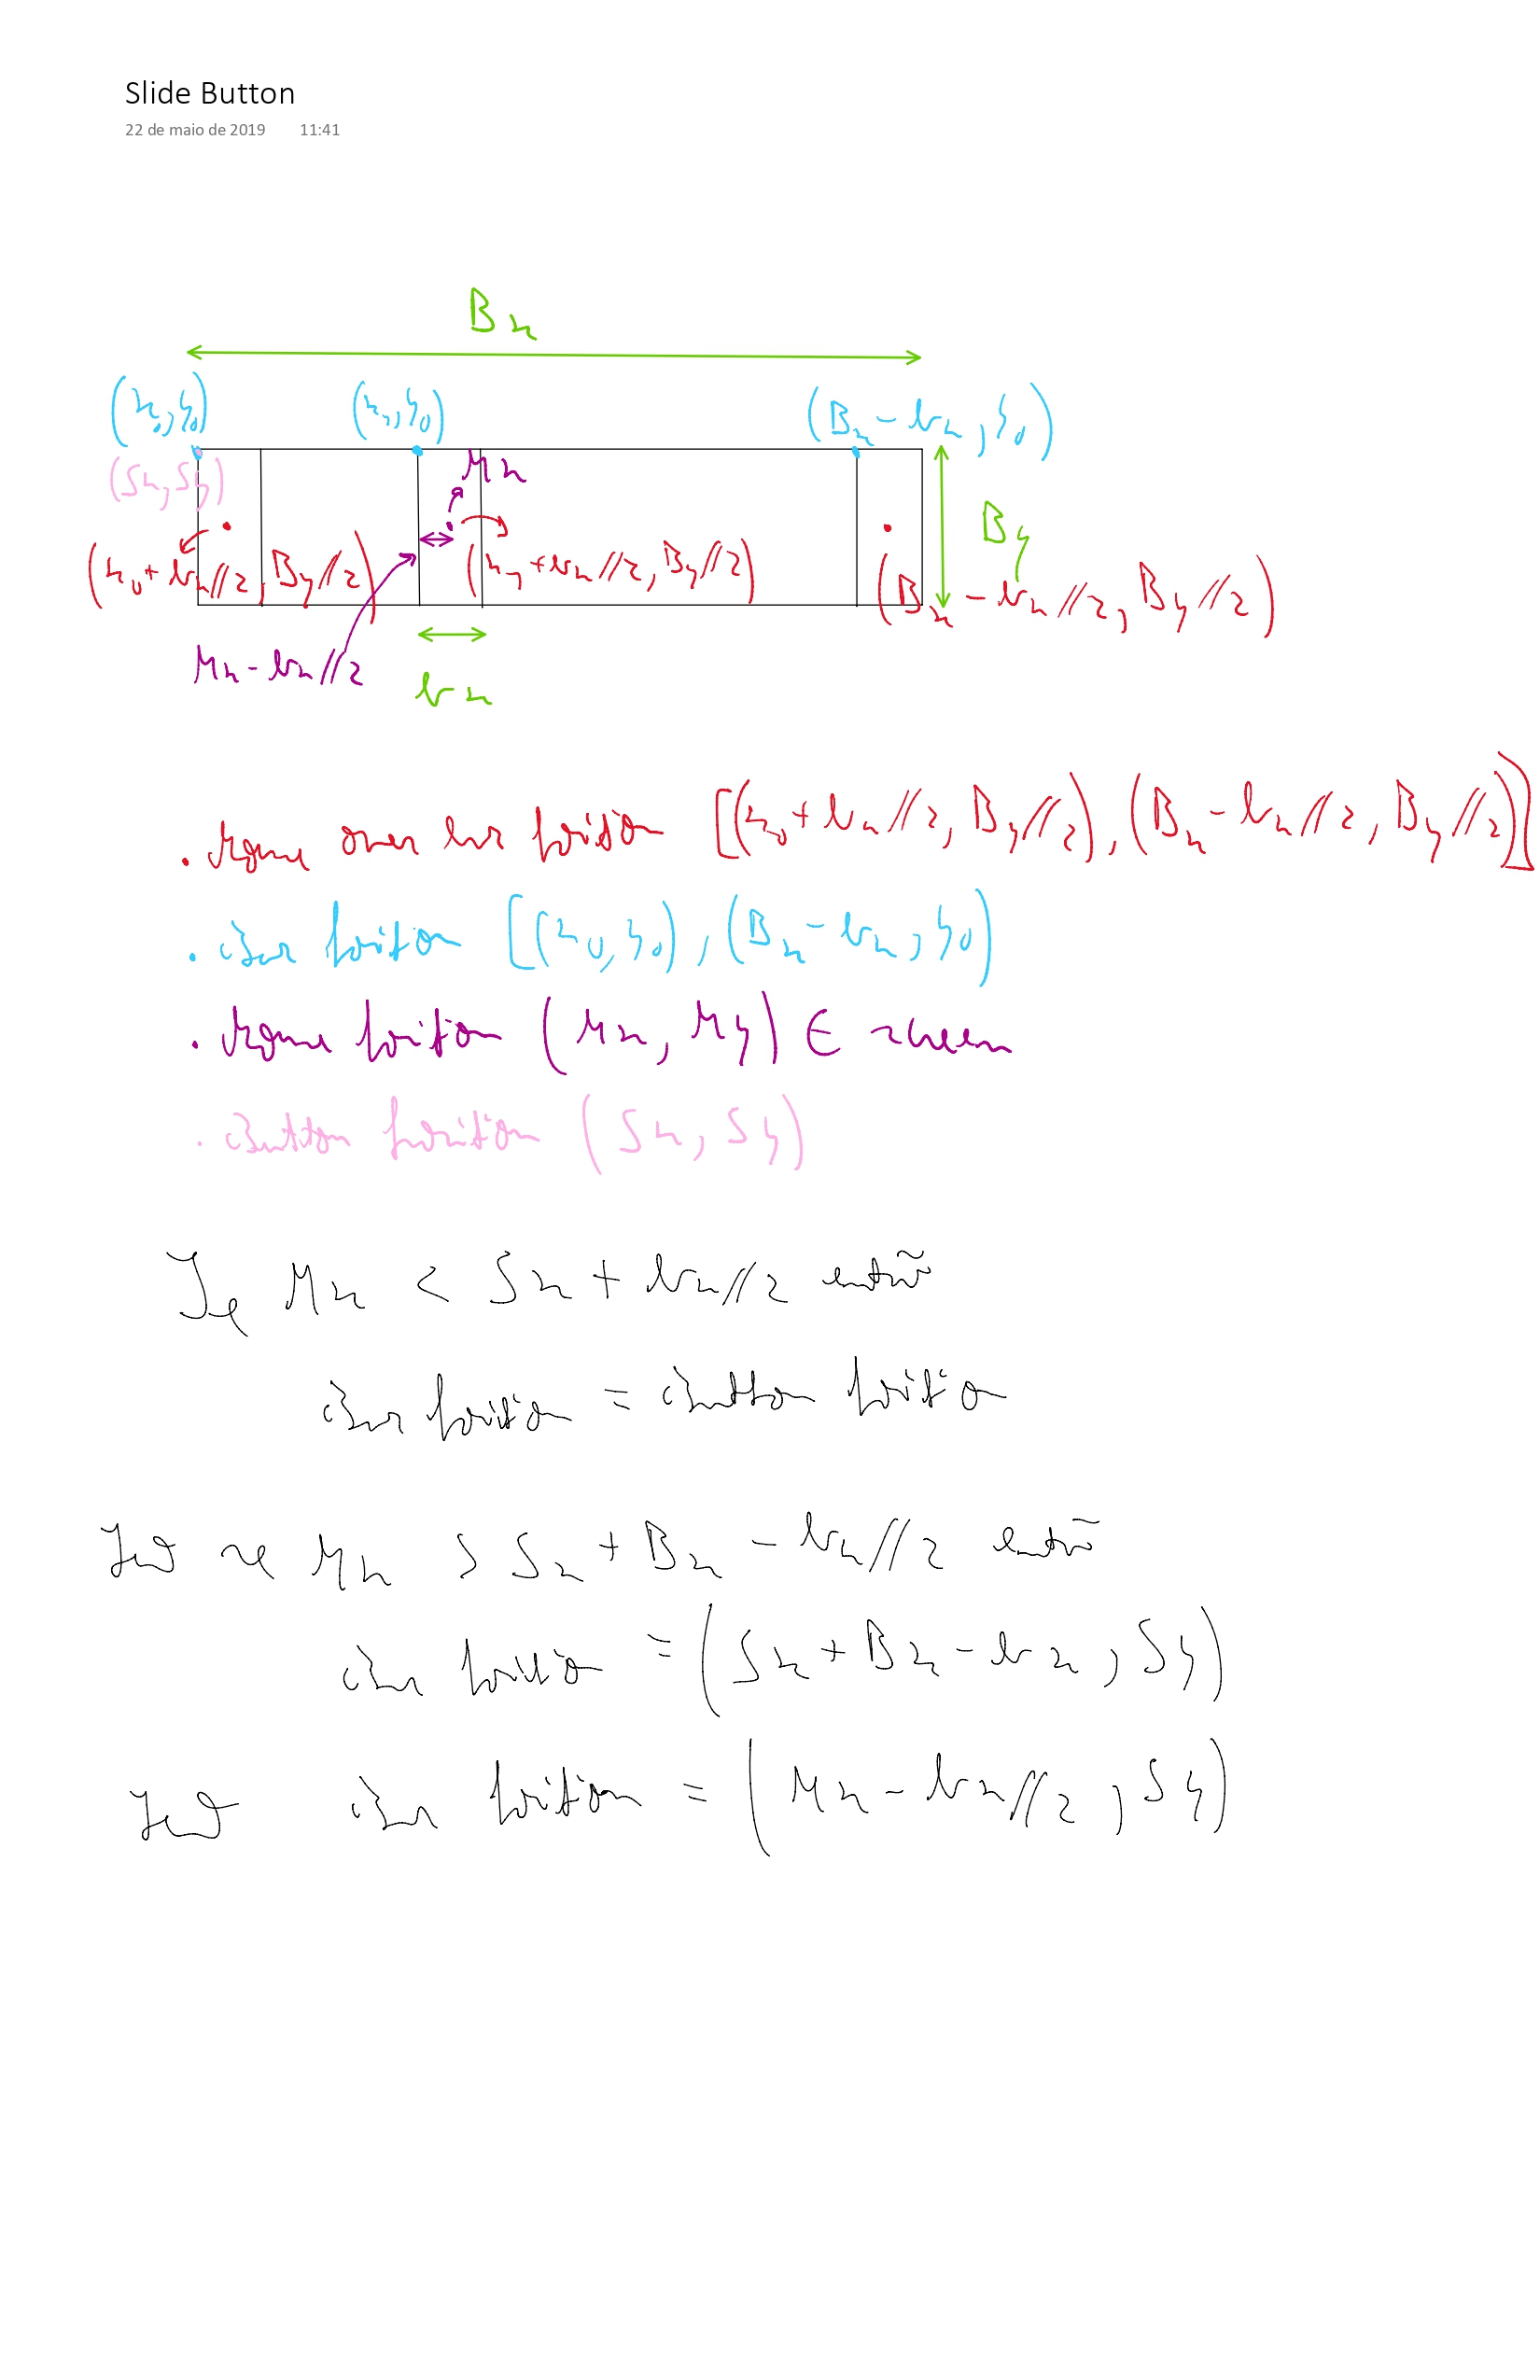 Slide Button
22 de maio de 2019 11:41
Bx
(x₀, y₀) (x₁, y₀) (Bx - bx, y₀)
(Sx, Sy) Mx
By
(x₀ + bx//2, By//2) (x₁ + bx//2, By//2) (Bx - bx//2, By//2)
Mx - bx//2
bx
. Mouse over bar position [(x₀ + bx//2, By//2), (Bx - bx//2, By//2)]
. Bar position [(x₀, y₀), (Bx - bx, y₀)
. Mouse position (Mx, My) ∈ screen
. Button position (Sx, Sy)
Se Mx < Sx + bx//2 então
Bar position = Button position
se Mx > Sx + Bx - bx//2 então
Bar position = (Sx + Bx - bx, Sy)
Bar position = (Mx - bx//2, Sy)